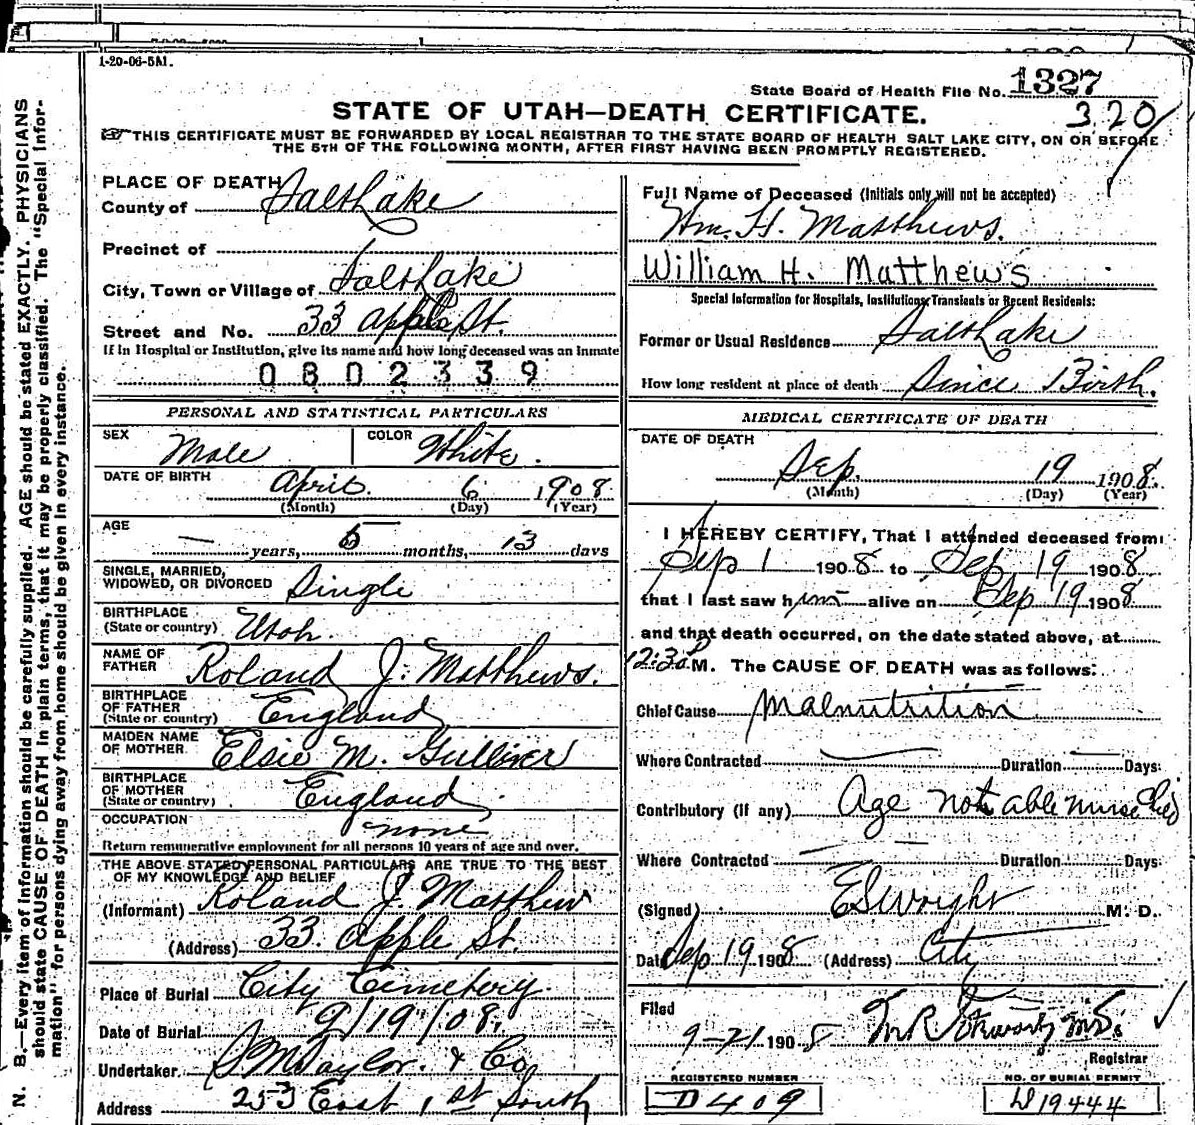 1-20-06-5M.
State Board of Health File No. 1327
320
STATE OF UTAH—DEATH CERTIFICATE.
THIS CERTIFICATE MUST BE FORWARDED BY LOCAL REGISTRAR TO THE STATE BOARD OF HEALTH SALT LAKE CITY, ON OR BEFORE
THE 5TH OF THE FOLLOWING MONTH, AFTER FIRST HAVING BEEN PROMPTLY REGISTERED.
N. B.—Every item of information should be carefully supplied. AGE should be stated EXACTLY. PHYSICIANS
should state CAUSE OF DEATH in plain terms, that it may be properly classified. The "Special Infor-
mation" for persons dying away from home should be given in every instance.
PLACE OF DEATH
County of Salt Lake
Precinct of
City, Town or Village of Salt Lake
Street and No. 33 Apple St.
If in Hospital or Institution, give its name and how long deceased was an inmate
0802339
PERSONAL AND STATISTICAL PARTICULARS
SEX Male COLOR White.
DATE OF BIRTH April 6 1908
(Month) (Day) (Year)
AGE — years, 5 months, 13 days
SINGLE, MARRIED,
WIDOWED, OR DIVORCED Single
BIRTHPLACE
(State or country) Utah.
NAME OF
FATHER Roland J. Matthews.
BIRTHPLACE
OF FATHER
(State or country) England
MAIDEN NAME
OF MOTHER Elsie M. Gulliver
BIRTHPLACE
OF MOTHER
(State or country) England
OCCUPATION none
Return remunerative employment for all persons 10 years of age and over.
THE ABOVE STATED PERSONAL PARTICULARS ARE TRUE TO THE BEST
OF MY KNOWLEDGE AND BELIEF
(Informant) Roland J. Matthew
(Address) 33. Apple St.
Place of Burial City Cemetery.
Date of Burial 9/19/08.
Undertaker S.M. Taylor. & Co
Address 253 East 1st South
Full Name of Deceased (Initials only will not be accepted)
Wm. H. Matthews.
William H. Matthews
Special Information for Hospitals, Institutions, Transients or Recent Residents:
Former or Usual Residence Salt Lake
How long resident at place of death Since Birth.
MEDICAL CERTIFICATE OF DEATH
DATE OF DEATH
Sep. 19 1908.
(Month) (Day) (Year)
I HEREBY CERTIFY, That I attended deceased from
Sep 1 1908 to Sep 19 1908
that I last saw him alive on Sep 19 1908
and that death occurred, on the date stated above, at
12:30 P M. The CAUSE OF DEATH was as follows:
Chief Cause Malnutrition
Where Contracted — Duration — Days
Contributory (if any) Age not able nurse
Where Contracted — — Duration Days
(Signed) E.S. Wright M. D.
Date Sep 19 1908 (Address) City
Filed
9-21 1908 M.D.
Registrar
REGISTERED NUMBER
D409
NO. OF BURIAL PERMIT
19444